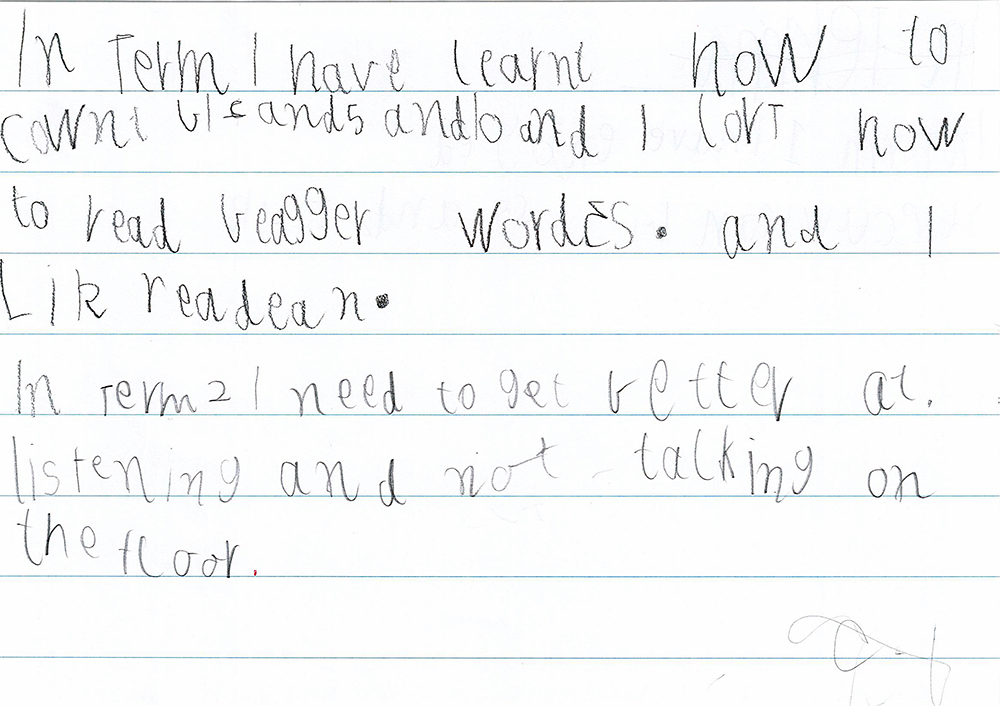 In Term I have learnt how to
cawnt b 2s and 5 and 10 and I lort how
to read beagger wordes. and I
Lik readean.
In Term 2 I need to get better at.
listening and not talking on
the floor.